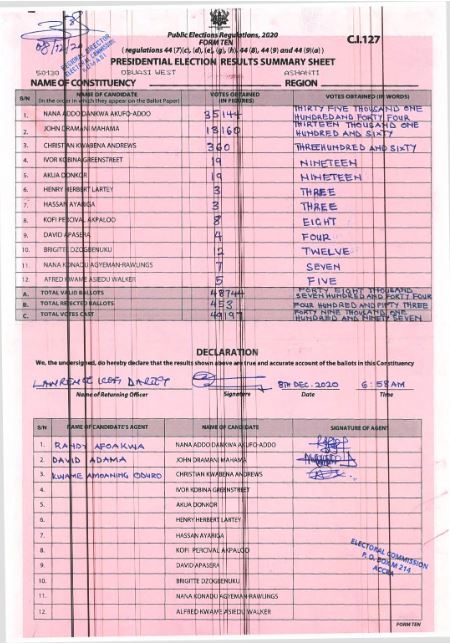 08/12/20
REGIONAL DIRECTOR
ELECTORAL COMMISSION
KUMASI
Public Elections Regulations, 2020
FORM TEN
C.I.127
( regulations 44 (7)(c), (d), (e), (g), (h), 44 (8), 44 (9) and 44 (9)(a) )
PRESIDENTIAL ELECTION RESULTS SUMMARY SHEET
50130 OBUASI WEST ASHANTI
NAME OF CONSTITUENCY REGION
S/N NAME OF CANDIDATE (In the order in which they appear on the Ballot Paper) VOTES OBTAINED (IN FIGURES) VOTES OBTAINED (IN WORDS)
1. NANA ADDO DANKWA AKUFO-ADDO 35144 THIRTY FIVE THOUSAND ONE HUNDRED AND FORTY FOUR
2. JOHN DRAMANI MAHAMA 13160 THIRTEEN THOUSAND ONE HUNDRED AND SIXTY
3. CHRISTIAN KWABENA ANDREWS 360 THREE HUNDRED AND SIXTY
4. IVOR KOBINA GREENSTREET 19 NINETEEN
5. AKUA DONKOR 19 NINETEEN
6. HENRY HERBERT LARTEY 3 THREE
7. HASSAN AYARIGA 3 THREE
8. KOFI PERCIVAL AKPALOO 8 EIGHT
9. DAVID APASERA 4 FOUR
10. BRIGITTE DZOGBENUKU 12 TWELVE
11. NANA KONADU AGYEMAN-RAWLINGS 7 SEVEN
12. ALFRED KWAME ASIEDU WALKER 5 FIVE
A. TOTAL VALID BALLOTS 48744 FORTY EIGHT THOUSAND SEVEN HUNDRED AND FORTY FOUR
B. TOTAL REJECTED BALLOTS 453 FOUR HUNDRED AND FIFTY THREE
C. TOTAL VOTES CAST 49197 FORTY NINE THOUSAND ONE HUNDRED AND NINETY SEVEN
DECLARATION
We, the undersigned, do hereby declare that the results shown above are true and accurate account of the ballots in this Constituency
LAWRENCE KOFI 8TH DEC. 2020 6:58AM
Name of Returning Officer Signature Date Time
S/N NAME OF CANDIDATE'S AGENT NAME OF CANDIDATE SIGNATURE OF AGENT
1. RANDY AFOAKWA NANA ADDO DANKWA AKUFO-ADDO
2. DAVID ADAMA JOHN DRAMANI MAHAMA
3. KWAME AMOANING ODURO CHRISTIAN KWABENA ANDREWS
4. IVOR KOBINA GREENSTREET
5. AKUA DONKOR
6. HENRY HERBERT LARTEY
7. HASSAN AYARIGA
8. KOFI PERCIVAL AKPALOO
9. DAVID APASERA
10. BRIGITTE DZOGBENUKU
11. NANA KONADU AGYEMAN-RAWLINGS
12. ALFRED KWAME ASIEDU WALKER
ELECTORAL COMMISSION
P. O. BOX M 214
ACCRA
FORM TEN